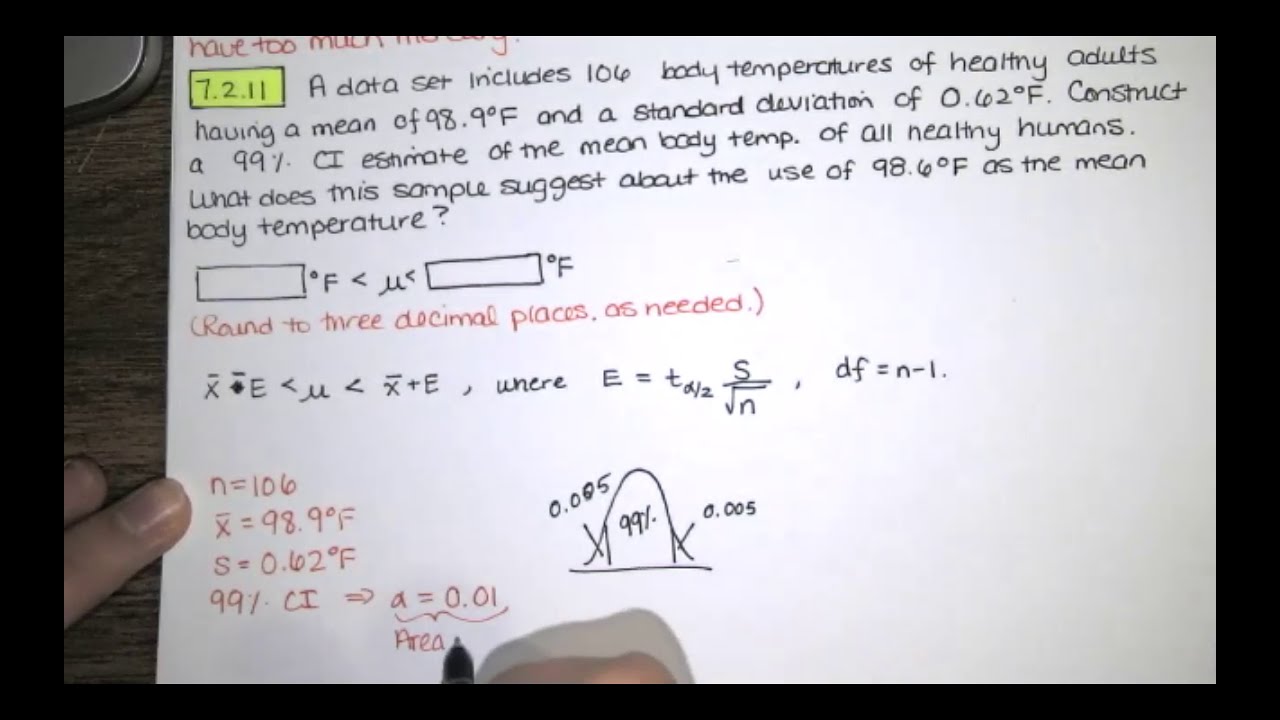 have too much mercury.
7.2.11 A data set includes 106 body temperatures of healthy adults
having a mean of 98.9°F and a standard deviation of 0.62°F. Construct
a 99% CI estimate of the mean body temp. of all healthy humans.
What does this sample suggest about the use of 98.6°F as the mean
body temperature?
°F < μ < °F
(Round to three decimal places, as needed.)
x̄ - E < μ < x̄ + E , where E = t_α/2 s/√n , df = n-1.
n=106
x̄ = 98.9°F
s = 0.62°F
99% CI ⇒ a = 0.01
Area
0.005 99% 0.005